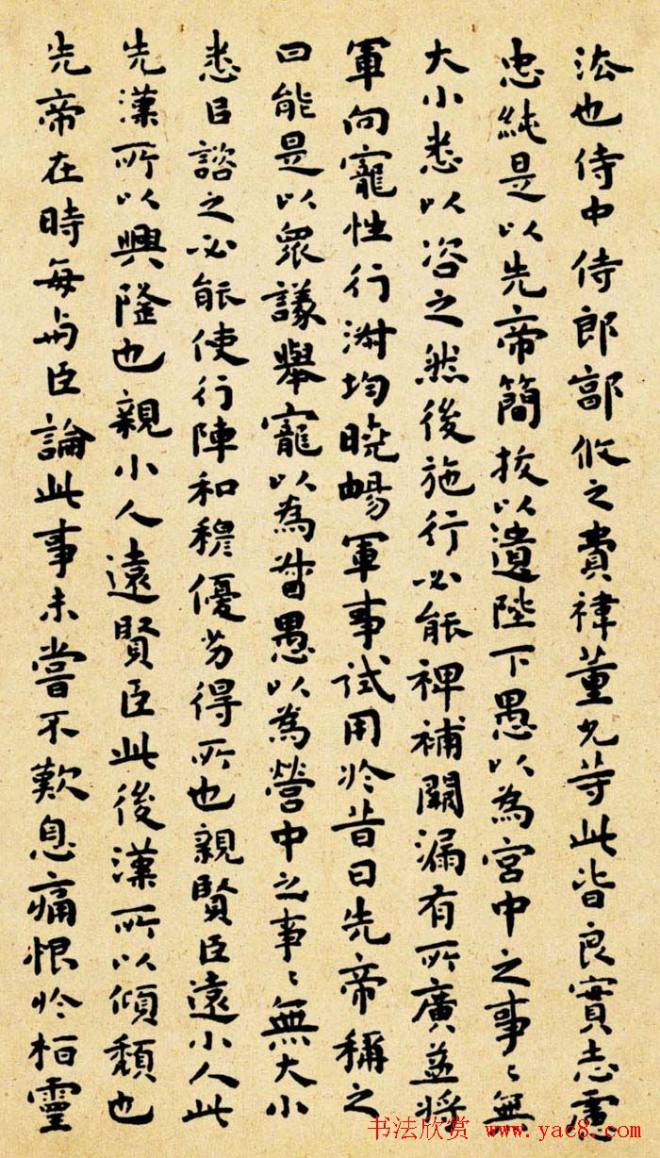 法也侍中侍郎郭攸之費禕董允等此皆良實志慮
忠純是以先帝簡拔以遺陛下愚以為宮中之事〻無
大小悉以咨之然後施行必能裨補闕漏有所廣益將
軍向寵性行淑均曉暢軍事試用於昔日先帝稱之
曰能是以眾議舉寵以為督愚以為營中之事〻無大小
悉以諮之必能使行陣和穆優劣得所也親賢臣遠小人此
先漢所以興隆也親小人遠賢臣此後漢所以傾頹也
先帝在時每與臣論此事未嘗不歎息痛恨於桓靈
书法欣赏 www.yac8.com